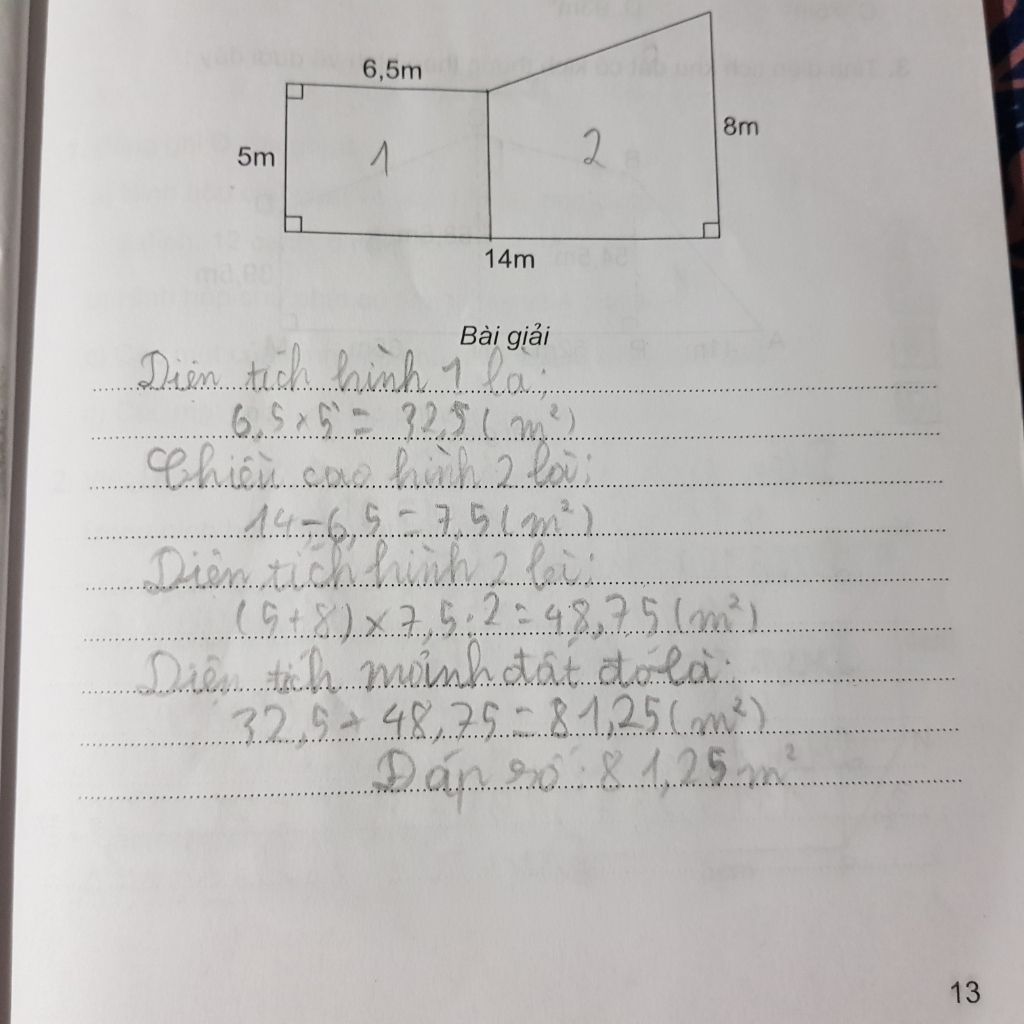 6,5m
5m
1
2
8m
14m
Bài giải
Diện tích hình 1 là:
6,5 × 5 = 32,5 ( m²)
Chiều cao hình 2 là:
14 - 6,5 = 7,5 (m²)
Diện tích hình 2 là:
(5+8) × 7,5 : 2 = 48,75 (m²)
Diện tích mảnh đất đó là:
32,5 + 48,75 = 81,25 (m²)
Đáp số : 81,25 m²
13